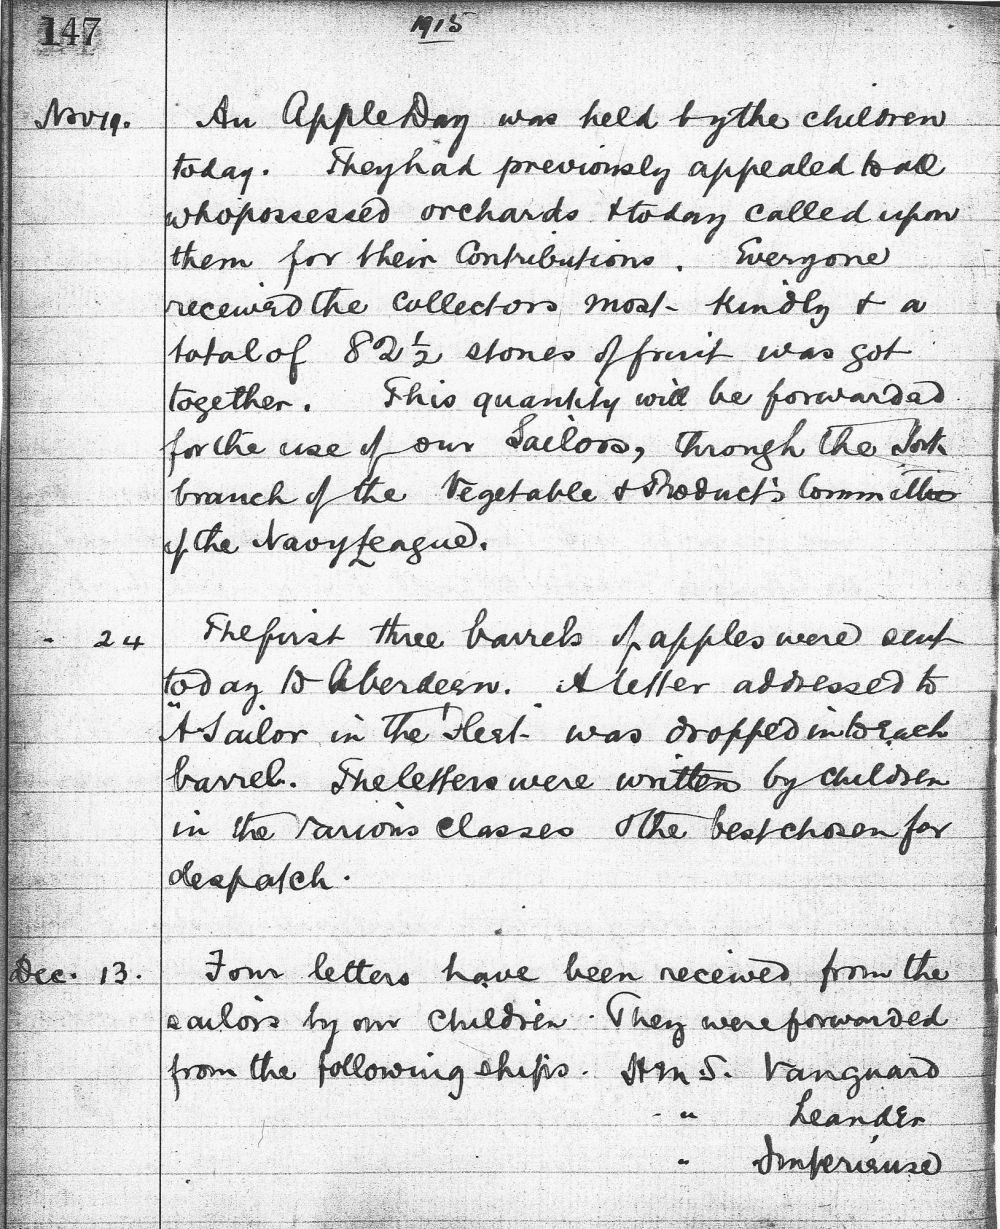 147
1915
Nov 19. An Apple Day was held by the children
today. They had previously appealed to all
who possessed orchards & today called upon
them for their Contributions. Everyone
received the Collectors most kindly & a
total of 82½ stones of fruit was got
together. This quantity will be forwarded
for the use of our Sailors, through the York
branch of the Vegetable & Products Committee
of the Navy League.
" 24 The first three barrels of apples were sent
today to Aberdeen. A letter addressed to
"A Sailor in the Fleet" was dropped into each
barrel. The letters were written by children
in the various classes & the best chosen for
despatch.
Dec. 13. Four letters have been received from the
sailors by our children. They were forwarded
from the following ships. H.M.S. Vanguard
" Leander
" Imperieuse